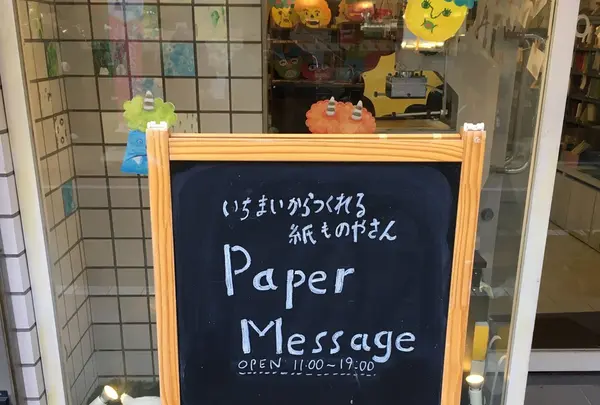 いちまいからつくれる
紙ものやさん
Paper
Message
OPEN 11:00~19:00